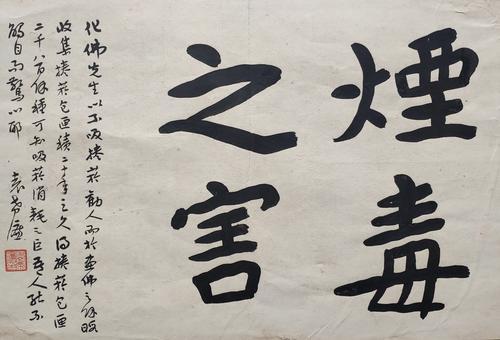 煙毒
之害
化佛先生以不吸捲菸勸人而於畫佛之餘暇
收集捲菸包匣積二十年之久得捲菸包匣
二千八百餘種可知吸菸消耗之巨吾人能不
觸目而驚心耶 袁希濂